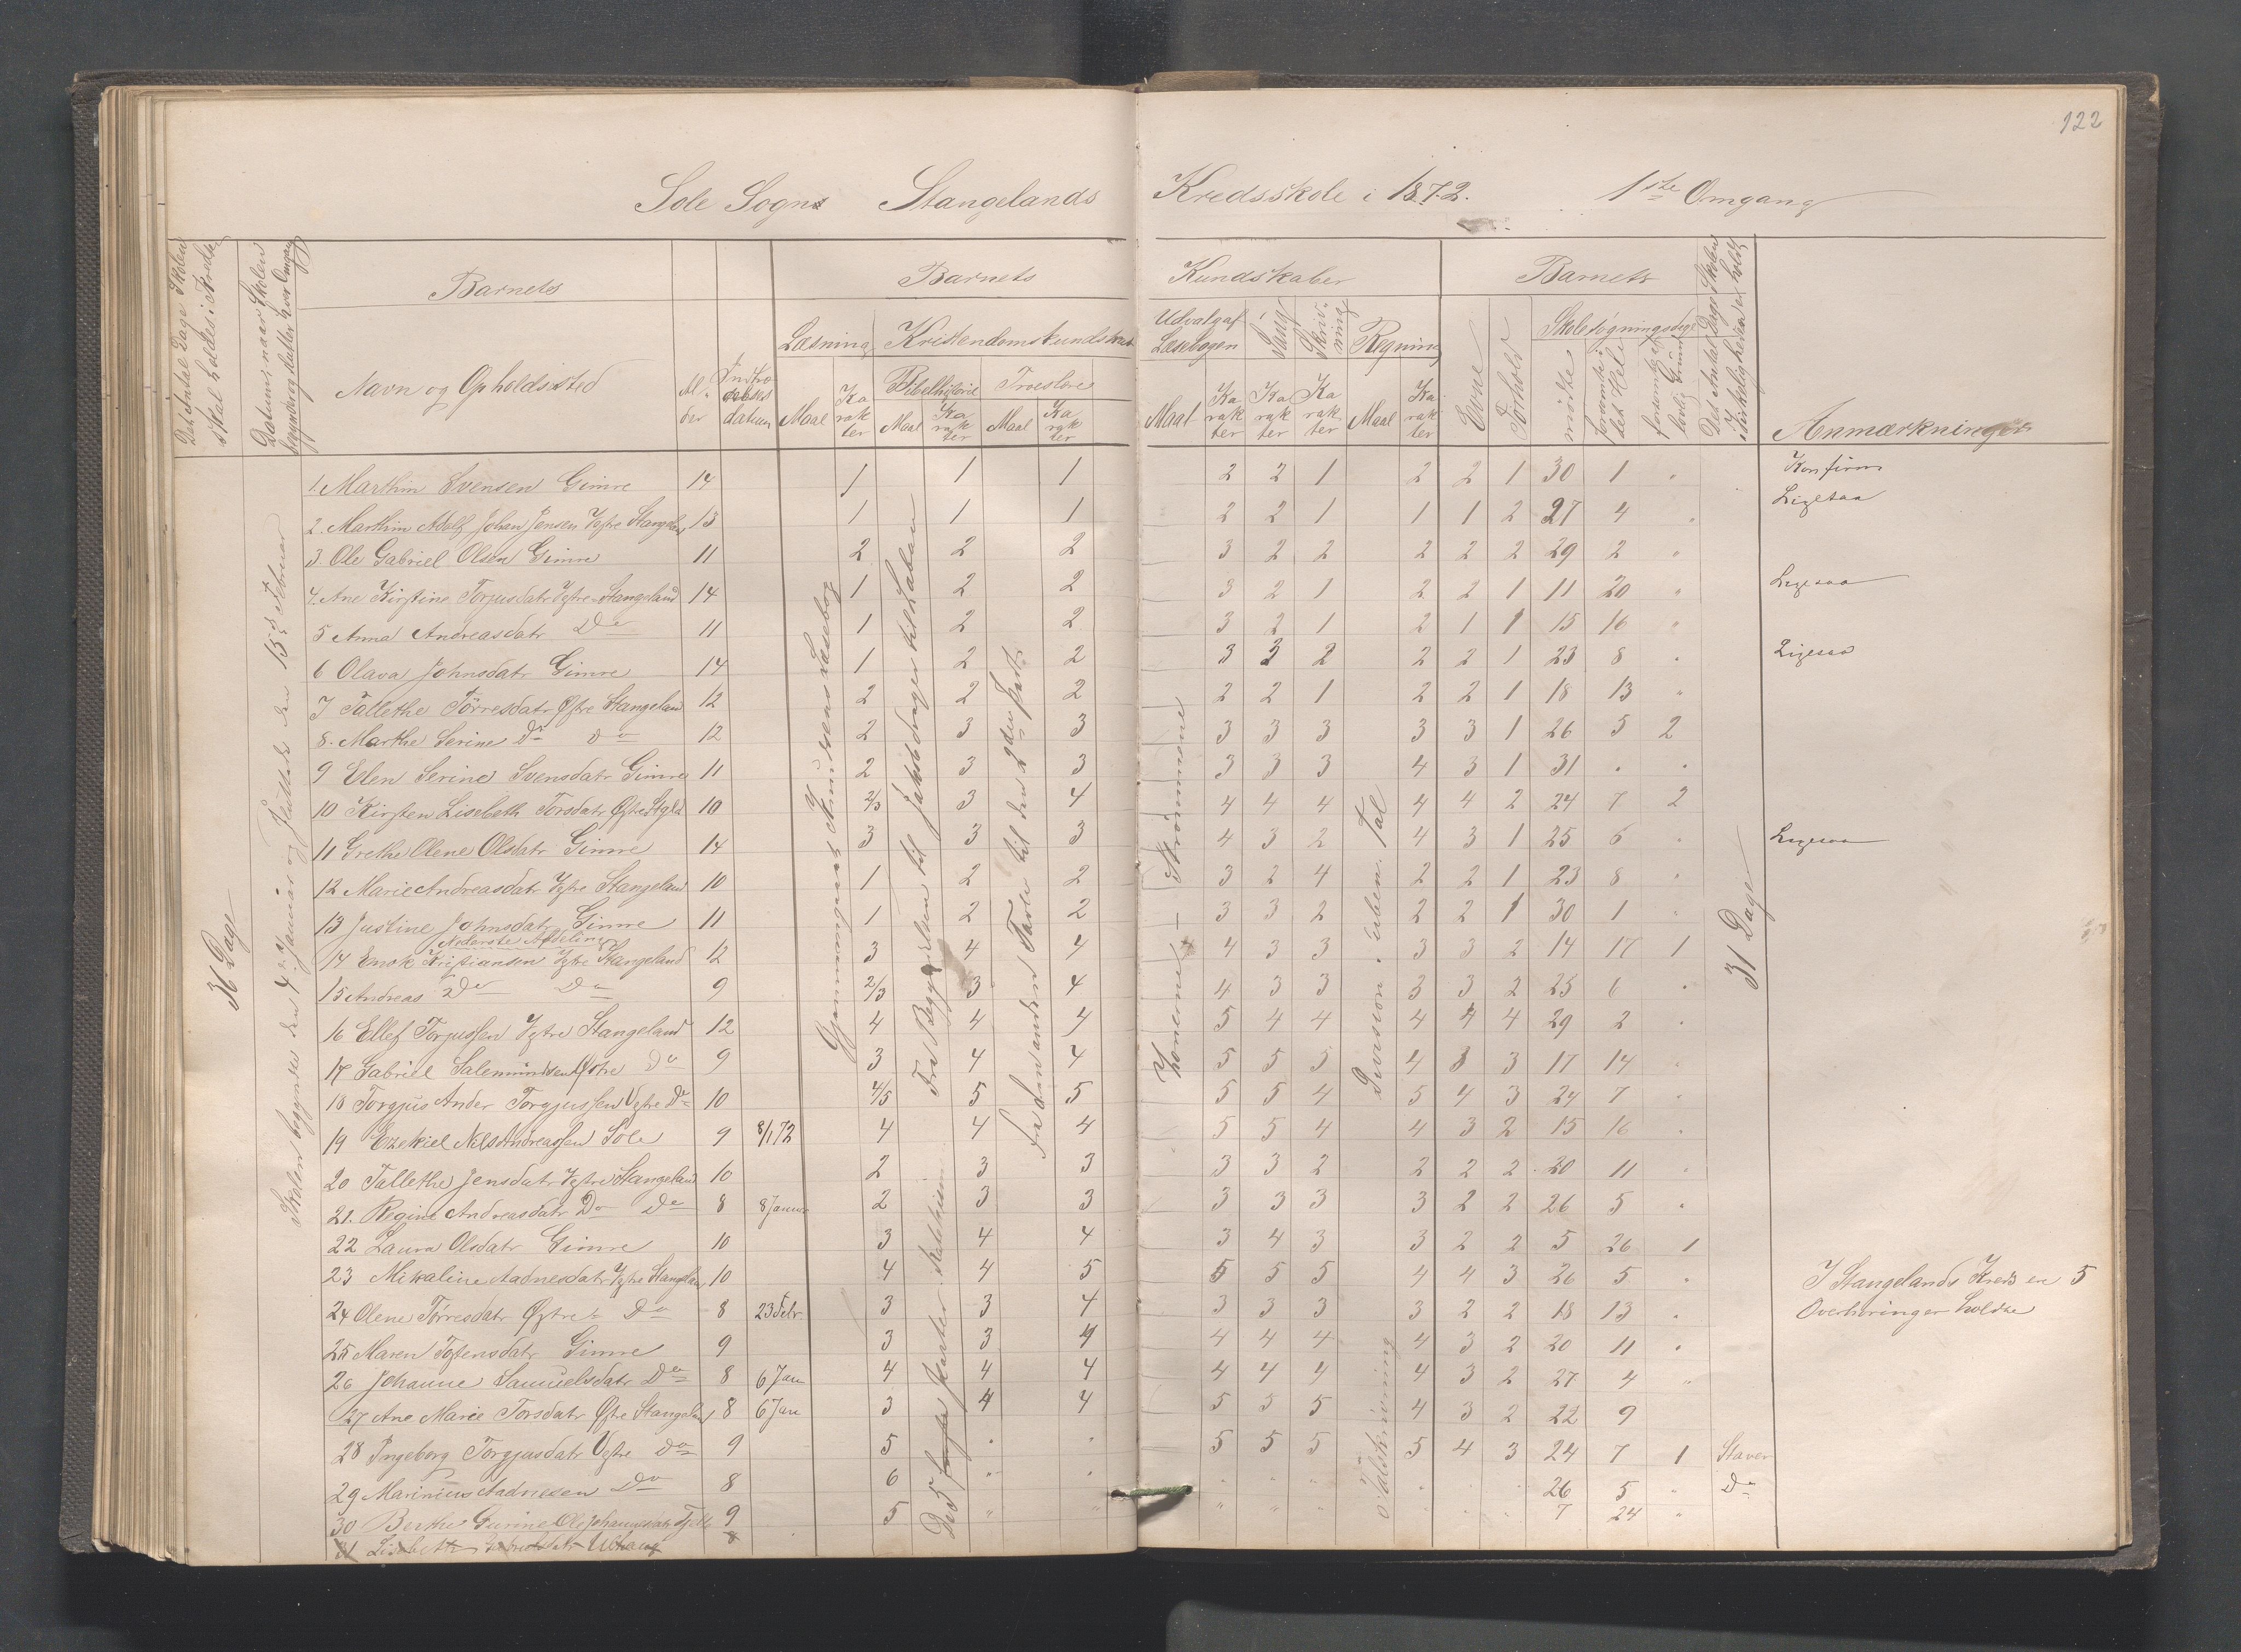 122
Sole Sogns Stangelands Kredsskole i 1872. 1ste Omgang
Det Antal Dage Skolen skal holdes i Kredsen
Datum, naar Skolen begynder og slutter hver Omgang
Barnets
Navn og Opholdssted
Alder
Indtrædelsesdatum
Barnets Kundskaber
Læsning
Kristendomskundskab
Bibelhistorie
Troeslære
Maal
Karakter
Maal
Karakter
Maal
Karakter
Udvalg af Læsebogen
Sang
Skrivning
Regning
Maal
Karakter
Karakter
Karakter
Maal
Karakter
Barnets
Evne
Forhold
Skolesøgningsdage
mødte
forsømte i det Hele
forsømte af lovlig Grund
Det Antal Dage Skolen i Virkeligheden er holdt
Anmærkninger
36 Dage
Skolen begyndte den 4de Januar og sluttede den 15de Februar
Gjennemgaaet Knudsens Læsebog
Fra Begyndelsen til Jakob drager til Laban
De 5 Parter
Fra den anden Parlen til den 2den Part
Konerne – Strømmene
Division i uben. Tal
Talskrivning
31 Dage
1 Marthin Svensen Gimre 14 1 1 1 2 2 1 2 2 1 30 1 " Konfirm
2. Marthin Adolf Johan Jensen Vestre Stangeland 13 1 1 1 2 2 1 1 1 2 27 4 " Ligesaa
3. Ole Gabriel Olsen Gimre 11 2 2 2 3 2 2 2 2 2 29 2 "
4. Ane Kirstine Torjusdatr Vestre Stangeland 14 1 2 2 3 2 1 2 2 1 11 20 " Ligesaa
5 Anna Andreasdatr Do 11 1 2 2 3 2 1 2 1 1 15 16 "
6 Olava Johnsdatr Gimre 14 1 2 2 3 3 2 2 2 1 23 8 " Ligesaa
7 Tallethe Tørresdatr Østre Stangeland 12 2 2 2 2 2 1 2 2 1 18 13 "
8. Marthe Serine Do do 12 2 3 3 3 3 3 3 3 1 26 5 2
9 Elen Serine Svensdatr Gimre 11 2 3 3 3 3 3 4 3 1 31 " "
10 Kirsten Lisebeth Torsdatr Østre Stgld 10 2/3 3 4 4 4 4 4 4 2 24 7 2
11 Grethe Olene Olsdatr Gimre 14 3 3 3 4 3 2 4 3 1 25 6 " Ligesaa
12 Marie Andreasdatr Vestre Stangeland 10 1 2 2 3 2 4 2 2 1 23 8 "
13 Justine Johnsdatr Gimre 11 1 2 2 3 3 2 2 2 1 30 1 "
Nederste Afdeling
14 Enok Kristiansen Vestre Stangeland 12 3 4 4 4 3 3 3 3 2 14 17 1
15 Andreas Do Do 9 2/3 3 4 4 3 3 3 3 2 25 6 "
16 Ellef Torjussen Vestre Stangeland 12 4 4 4 5 4 4 4 4 4 29 2 "
17 Gabriel Salemundsen Østre Do 9 3 4 4 5 5 5 4 3 3 17 14 "
18 Torgjus Ander Torgjussen Vestre Do 10 4/5 5 5 5 5 4 5 4 3 24 7 "
19 Ezekiel Nils Andreassen Sole 9 8/1 72 4 4 4 5 5 4 4 3 2 15 16 "
20 Tallethe Jensdatr Vestre Stangeland 10 2 3 3 3 3 2 2 2 2 20 11 "
21. Regine Andreasdatr Do Do 8 8 Januar 2 3 3 3 3 3 3 2 2 26 5 "
22 Laura Olsdatr Gimre 10 3 4 4 3 4 3 3 2 2 5 26 1
23 Mikaline Aadnesdatr Vestre Stangeland 10 4 4 5 5 5 5 4 4 3 26 5 "
24 Olene Tørresdatr Østre Do 8 23 Febr. 3 3 4 3 3 3 3 2 2 18 13 "
25 Maren Tostensdatr Gimre 9 3 3 4 4 4 4 4 3 2 20 11 "
26 Johanne Samuelsdatr Do 8 6 Jan 4 4 4 4 4 4 4 3 2 27 4 "
27 Ane Marie Torsdatr Østre Stangeland 8 6 Jan 3 4 4 5 5 5 4 3 2 22 9
28 Ingeborg Torgjusdatr Vestre Do 9 5 " " 5 5 5 5 4 3 24 7 1 Staver
29 Marinius Aadnesen Do 8 6 " " " " " " " " 26 5 " Do
30 Berthe Gurine 9 5 " " " " " " " " 7 24 "
31 Lisebeth 8
I Stangelands Kreds ere 5
Overhøringer holdte